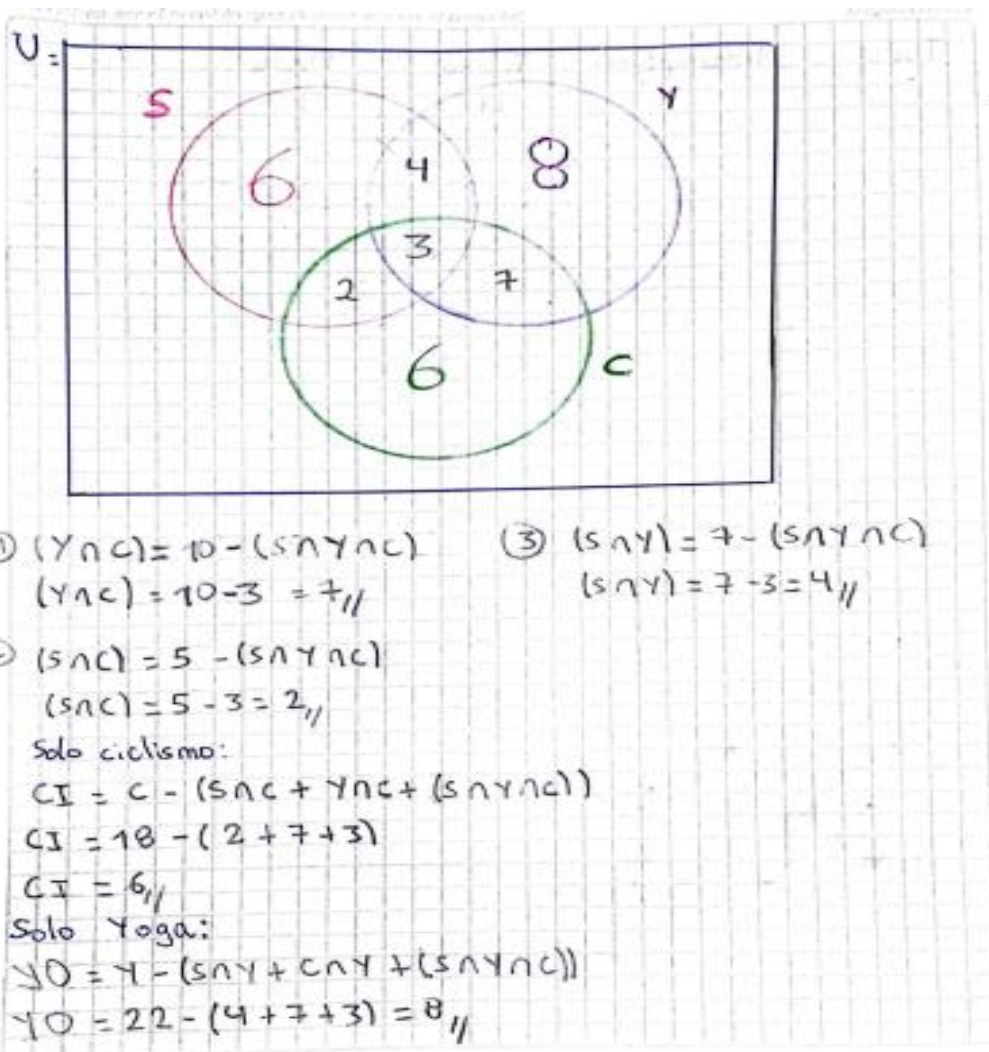 U=
S
Y
6
4
8
3
2
7
6
C
(Y∩C)= 10-(S∩Y∩C)
(Y∩C)=10-3 =7//
③ (S∩Y)=7-(S∩Y∩C)
(S∩Y)=7-3=4//
(S∩C)=5 -(S∩Y∩C)
(S∩C)=5-3=2//
Solo ciclismo:
CI = C-(S∩C + Y∩C+(S∩Y∩C))
CI =18-(2+7+3)
CI = 6//
Solo Yoga:
YO=Y-(S∩Y+C∩Y+(S∩Y∩C))
YO=22-(4+7+3)=8//